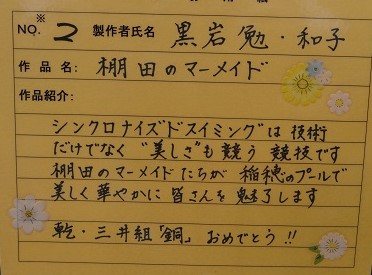 ※
NO. 2 製作者氏名 黒岩 勉・和子
作品名: 棚田のマーメイド
作品紹介:
シンクロナイズドスイミングは 技術
だけでなく "美しさ"も 競う 競技です
棚田のマーメイドたちが 稲穂のプールで
美しく 華やかに 皆さんを 魅了します
乾・三井組「銅」おめでとう!!